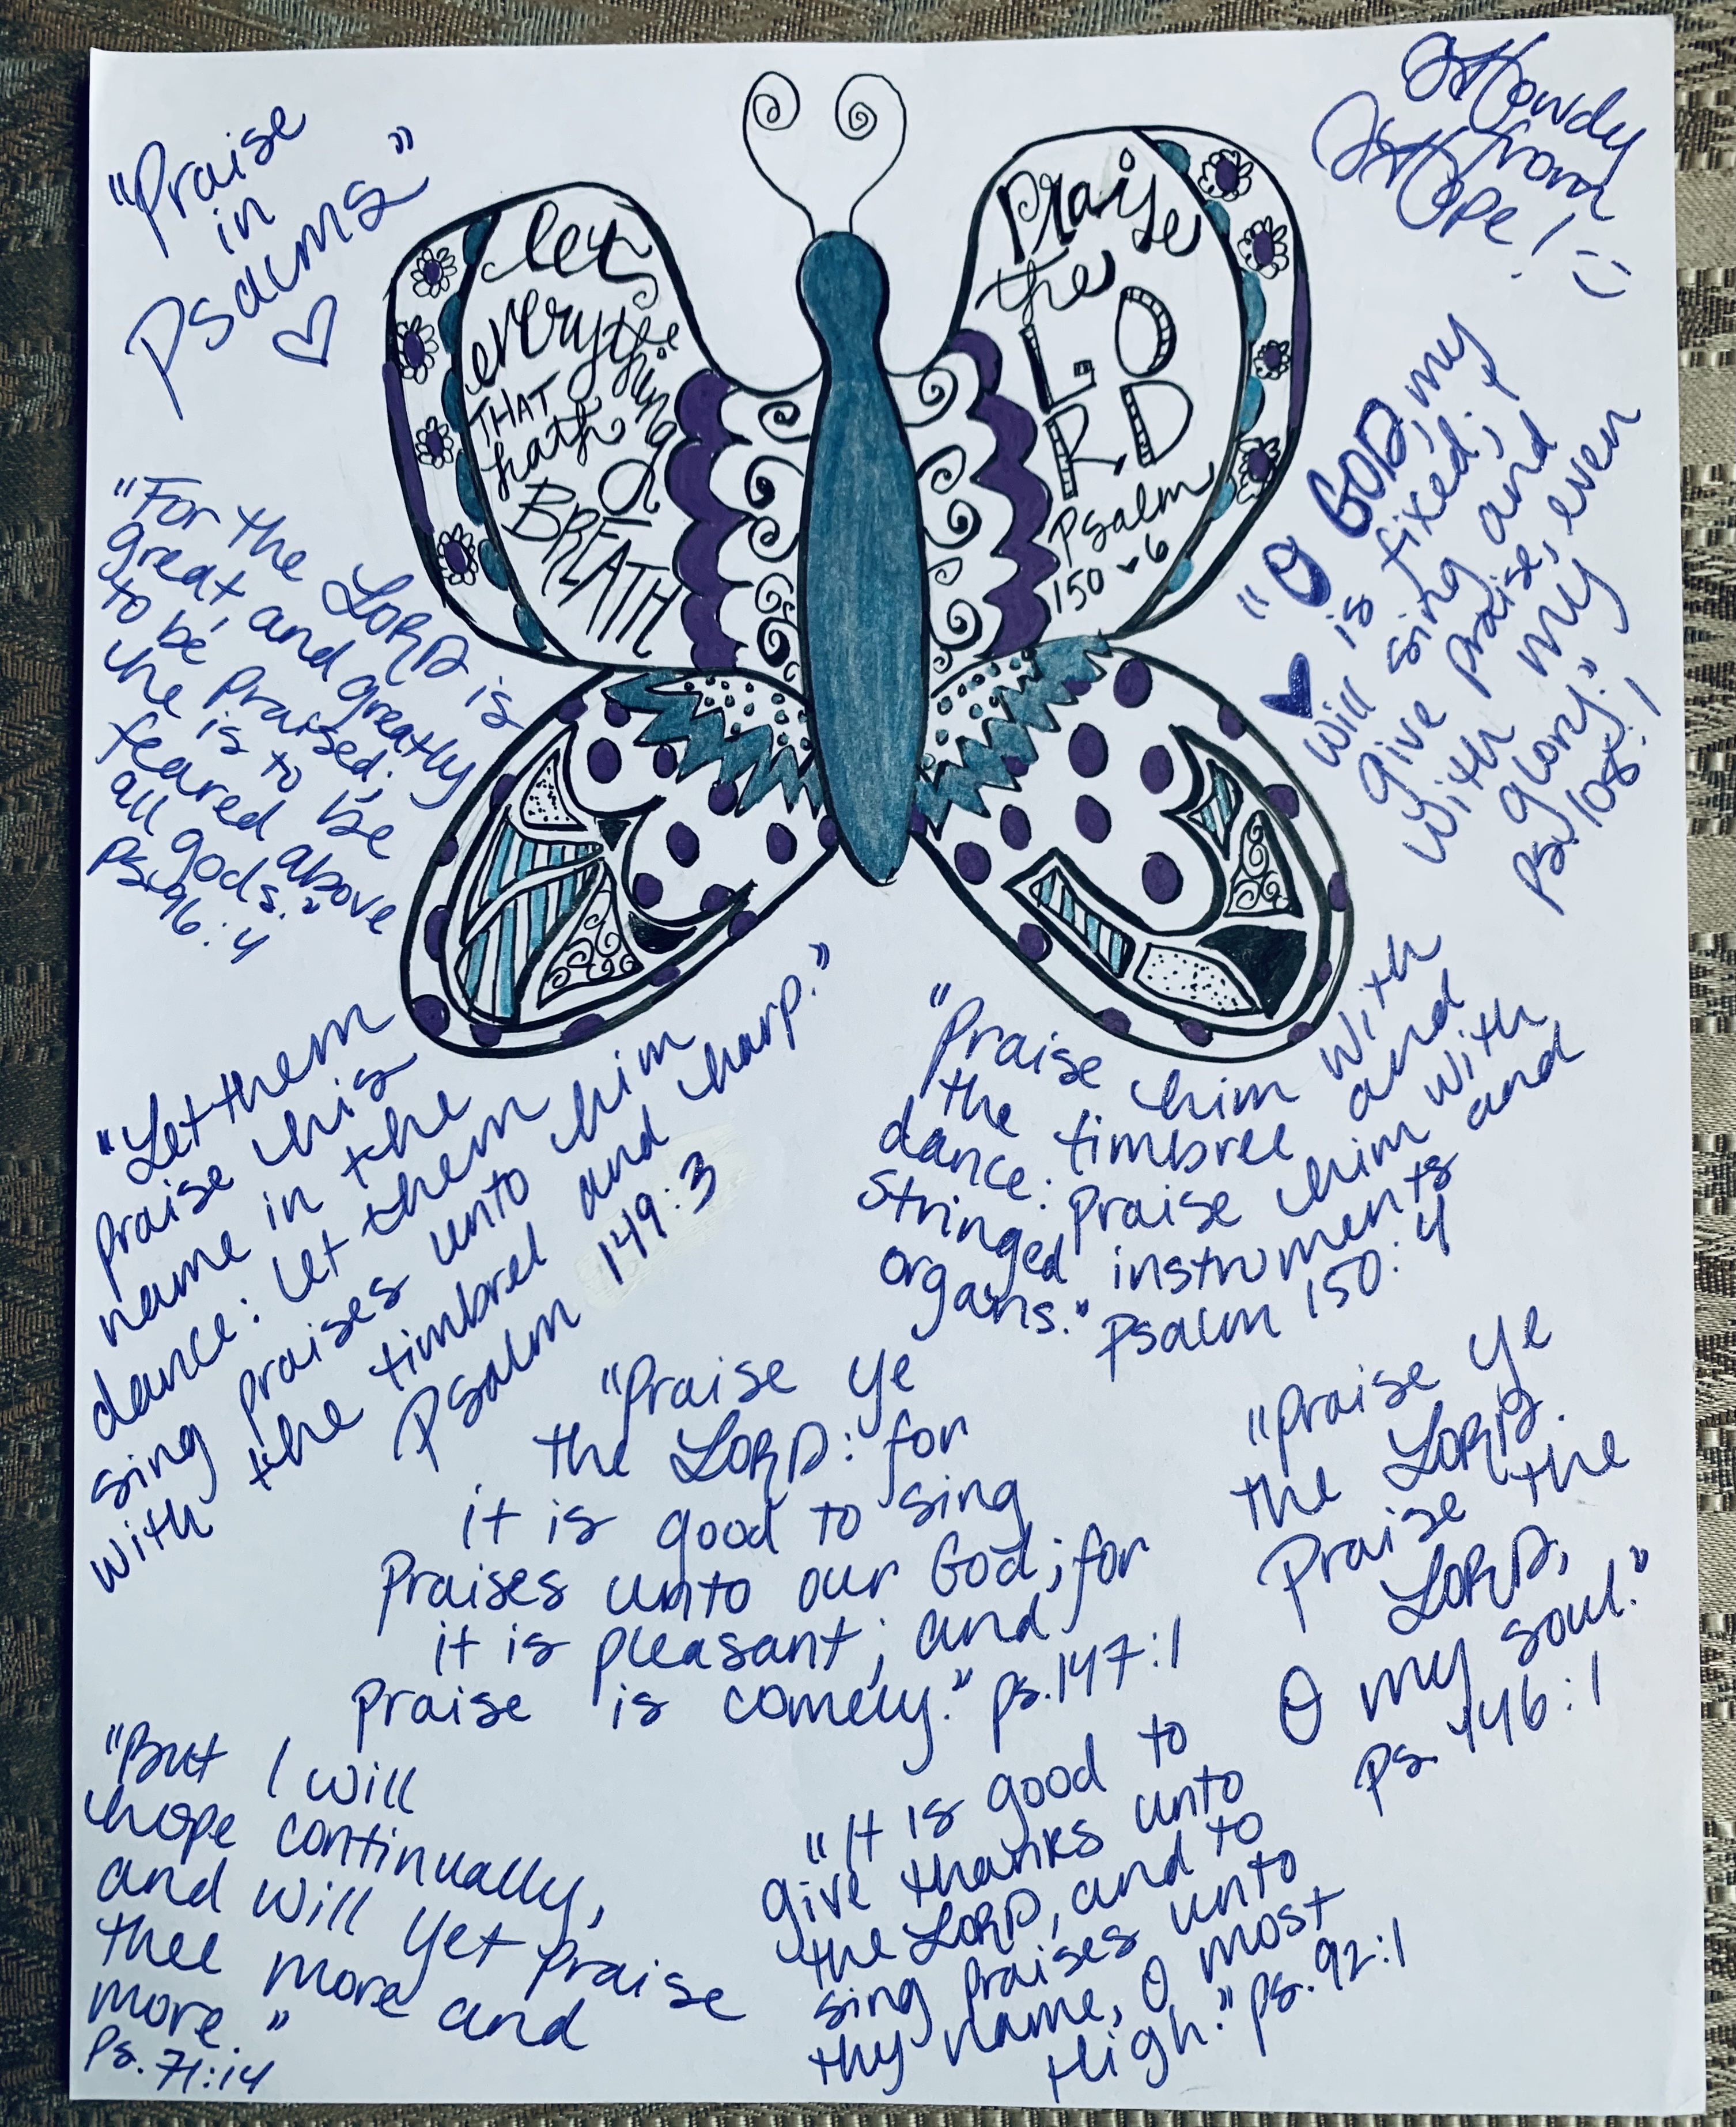 "Praise
in
Psalms"
Howdy
from
Hope! :)
let
everything
THAT
hath
BREATH
praise
the
LO
RD
Psalm
150 6
"For the LORD is
great, and greatly
to be praised;
he is to be
feared above
all gods."
Ps. 96:4
"O GOD, my
♥ is fixed; I
will sing and
give praise, even
with my
glory."
Ps. 108:1
"Let them
praise his
name in the
dance: let them
sing praises unto him
with the timbrel and harp."
Psalm 149:3
"Praise him with
the timbrel and
dance: Praise him with
stringed instruments and
organs." Psalm 150:4
"Praise ye
the LORD: for
it is good to sing
praises unto our God; for
it is pleasant; and
praise is comely." Ps. 147:1
"Praise ye
the LORD.
Praise the
LORD,
O my soul."
Ps. 146:1
"But I will
hope continually,
and will yet praise
thee more and
more."
Ps. 71:14
"It is good to
give thanks unto
the LORD, and to
sing praises unto
thy name, O most
High." Ps. 92:1